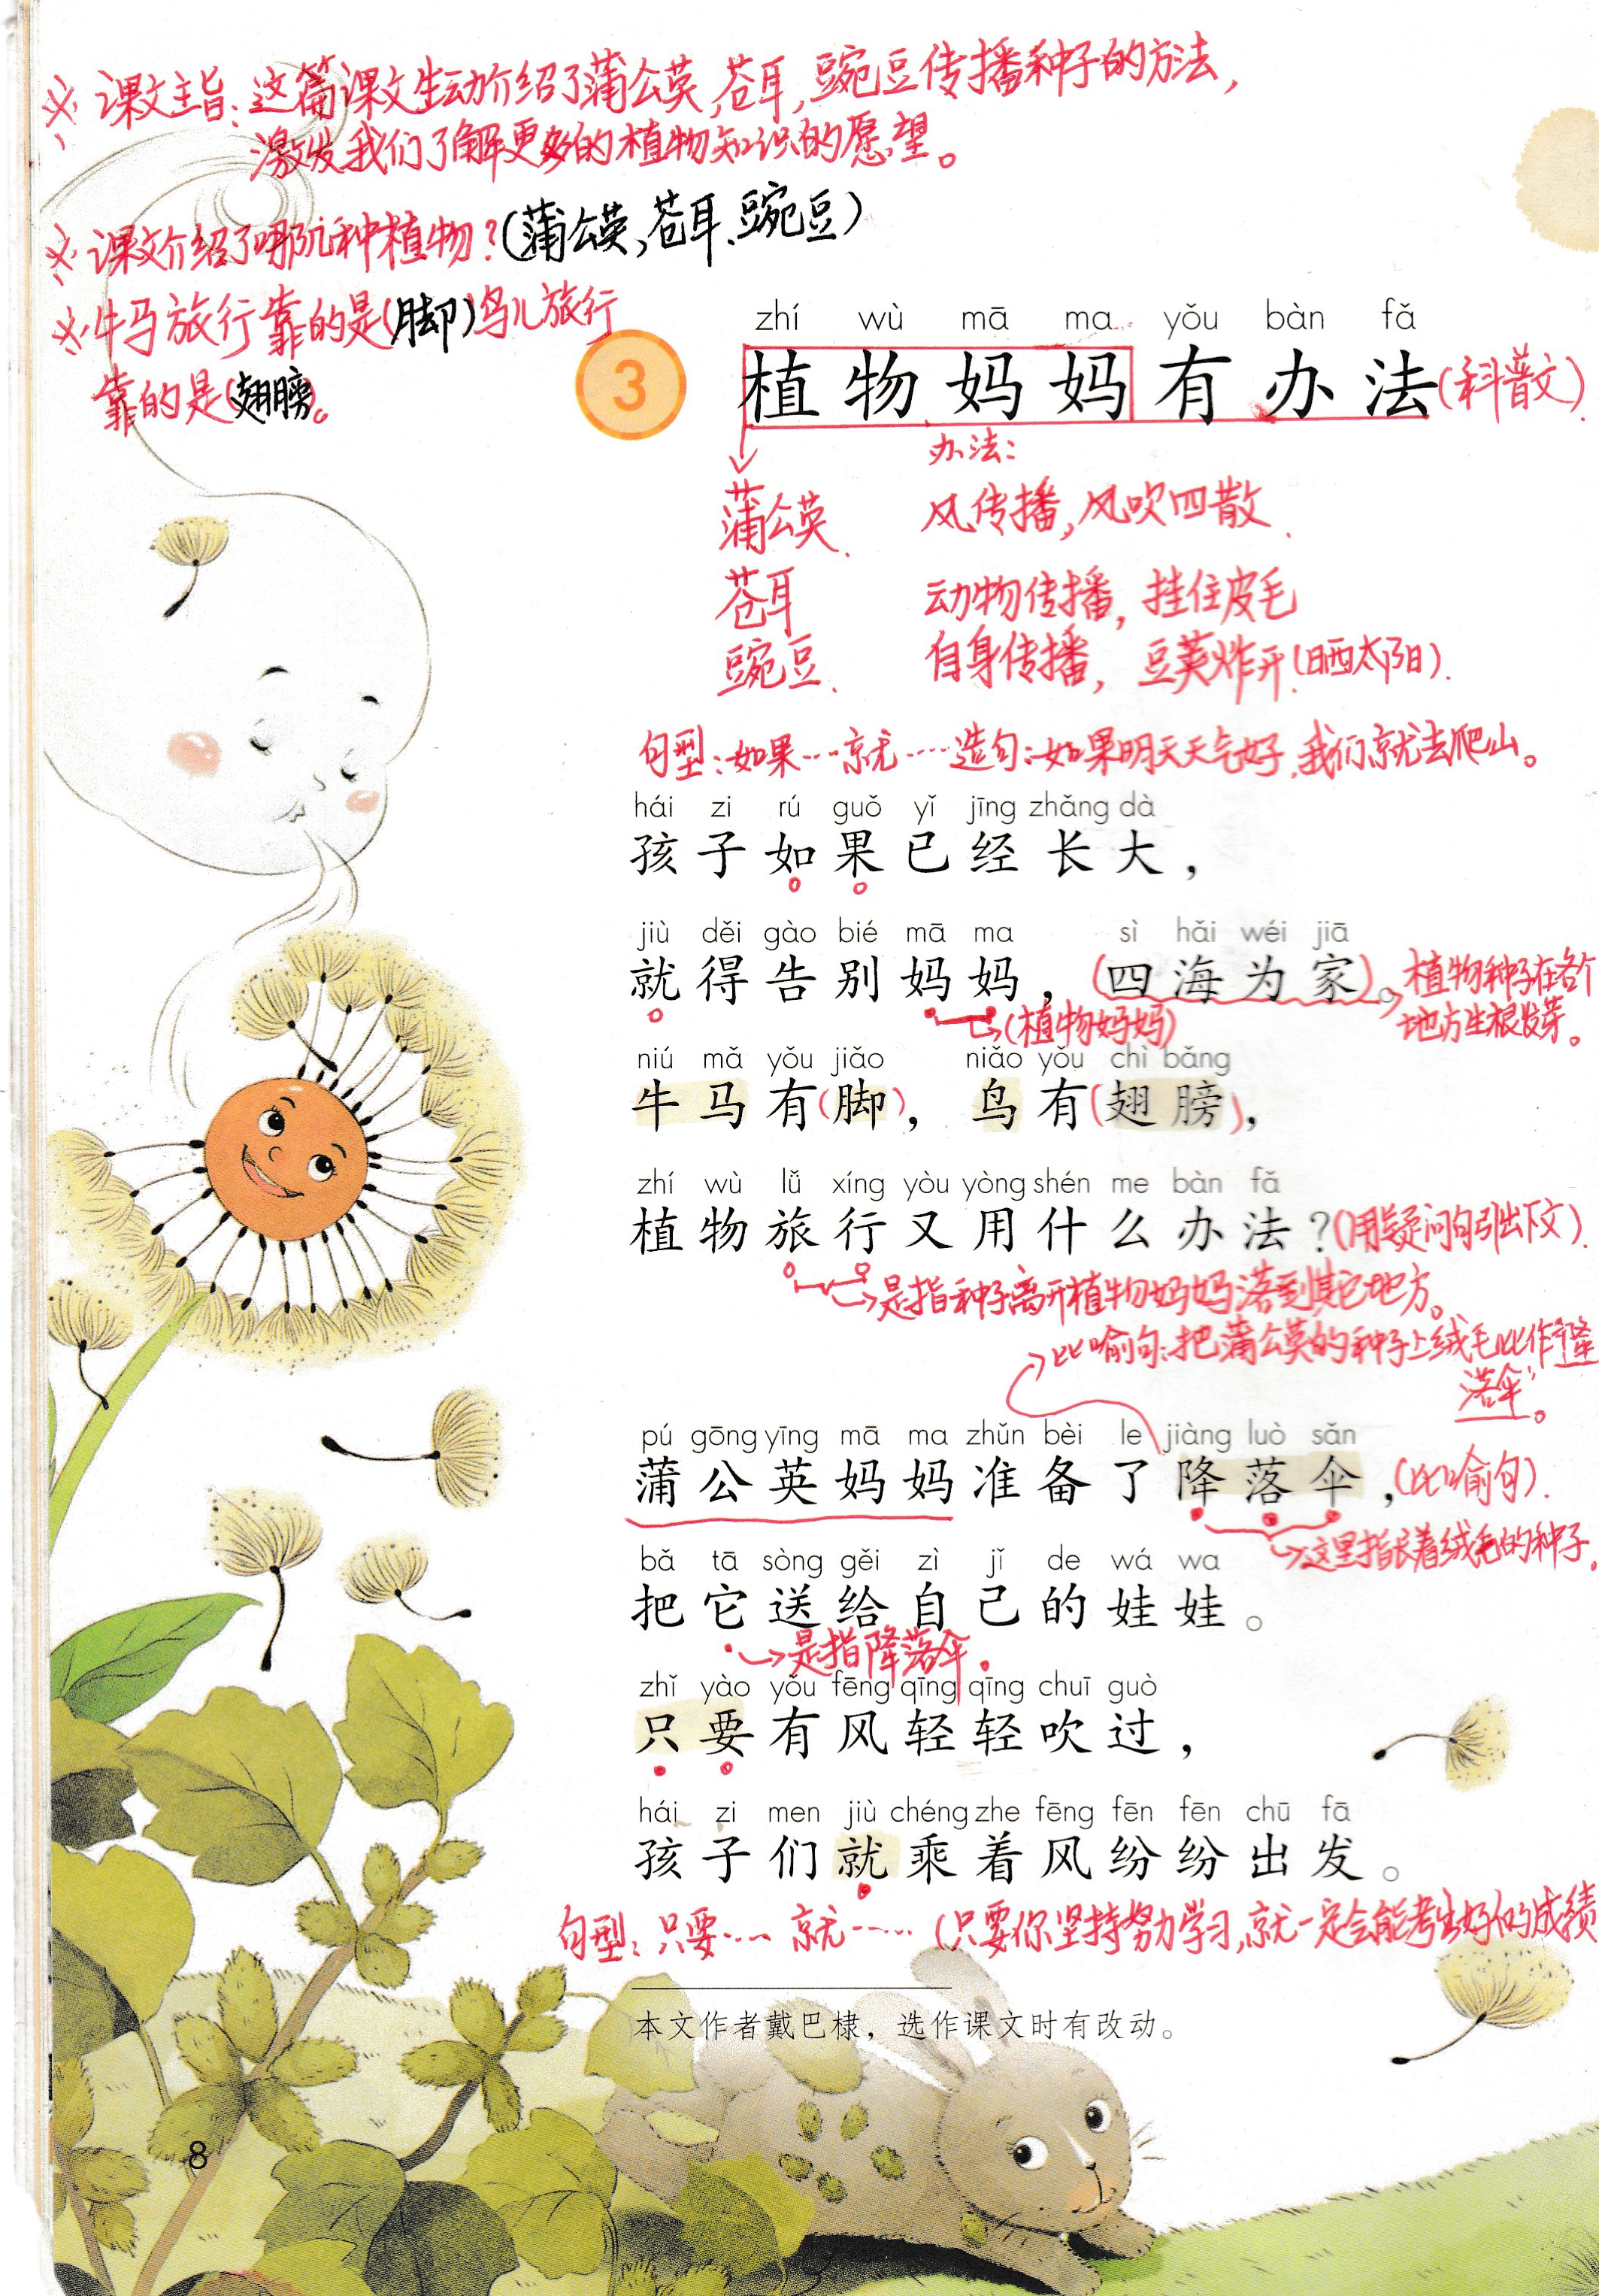 ※ 课文主旨：这篇课文生动介绍了蒲公英，苍耳，豌豆传播种子的方法，
激发我们了解更多的植物知识的愿望。
※ 课文介绍了哪几种植物？（蒲公英，苍耳、豌豆）
※ 牛马旅行靠的是（脚）鸟儿旅行
靠的是（翅膀）。
zhí wù mā ma yǒu bàn fǎ
3 植物妈妈有办法（科普文）.
办法：
蒲公英. 风传播，风吹四散.
苍耳 动物传播，挂住皮毛
豌豆. 自身传播，豆荚炸开.（晒太阳）.
句型：如果……就……造句：如果明天天气好，我们就去爬山。
hái zi rú guǒ yǐ jīng zhǎng dà
孩子如果已经长大，
jiù děi gào bié mā ma sì hǎi wéi jiā
就得告别妈妈，（四海为家）。植物种子在各个
地方生根发芽。
（植物妈妈）
niú mǎ yǒu jiǎo niǎo yǒu chì bǎng
牛马有（脚），鸟有（翅膀），
zhí wù lǚ xíng yòu yòng shén me bàn fǎ
植物旅行又用什么办法？（用疑问句引出下文）.
是指种子离开植物妈妈落到其它地方。
比喻句：把蒲公英的种子上绒毛比作“降
落伞”。
pú gōng yīng mā ma zhǔn bèi le jiàng luò sǎn
蒲公英妈妈准备了降落伞，（比喻句）.
这里指长着绒毛的种子.
bǎ tā sòng gěi zì jǐ de wá wa
把它送给自己的娃娃。
是指降落伞.
zhǐ yào yǒu fēng qīng qīng chuī guò
只要有风轻轻吹过，
hái zi men jiù chéng zhe fēng fēn fēn chū fā
孩子们就乘着风纷纷出发。
句型：只要…… 就……（只要你坚持努力学习，就一定会能考出好的成绩
本文作者戴巴棣，选作课文时有改动。
8